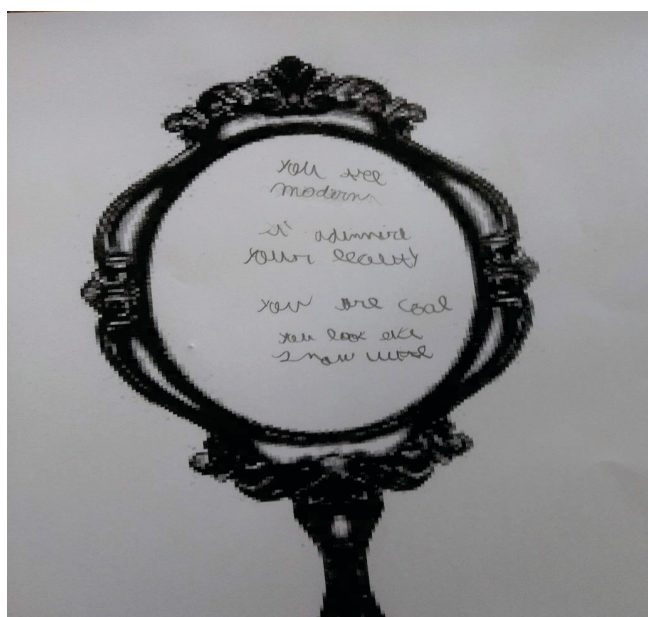 you are
modern
it' adimire
your beauty
you are coal
you look like
snow wite